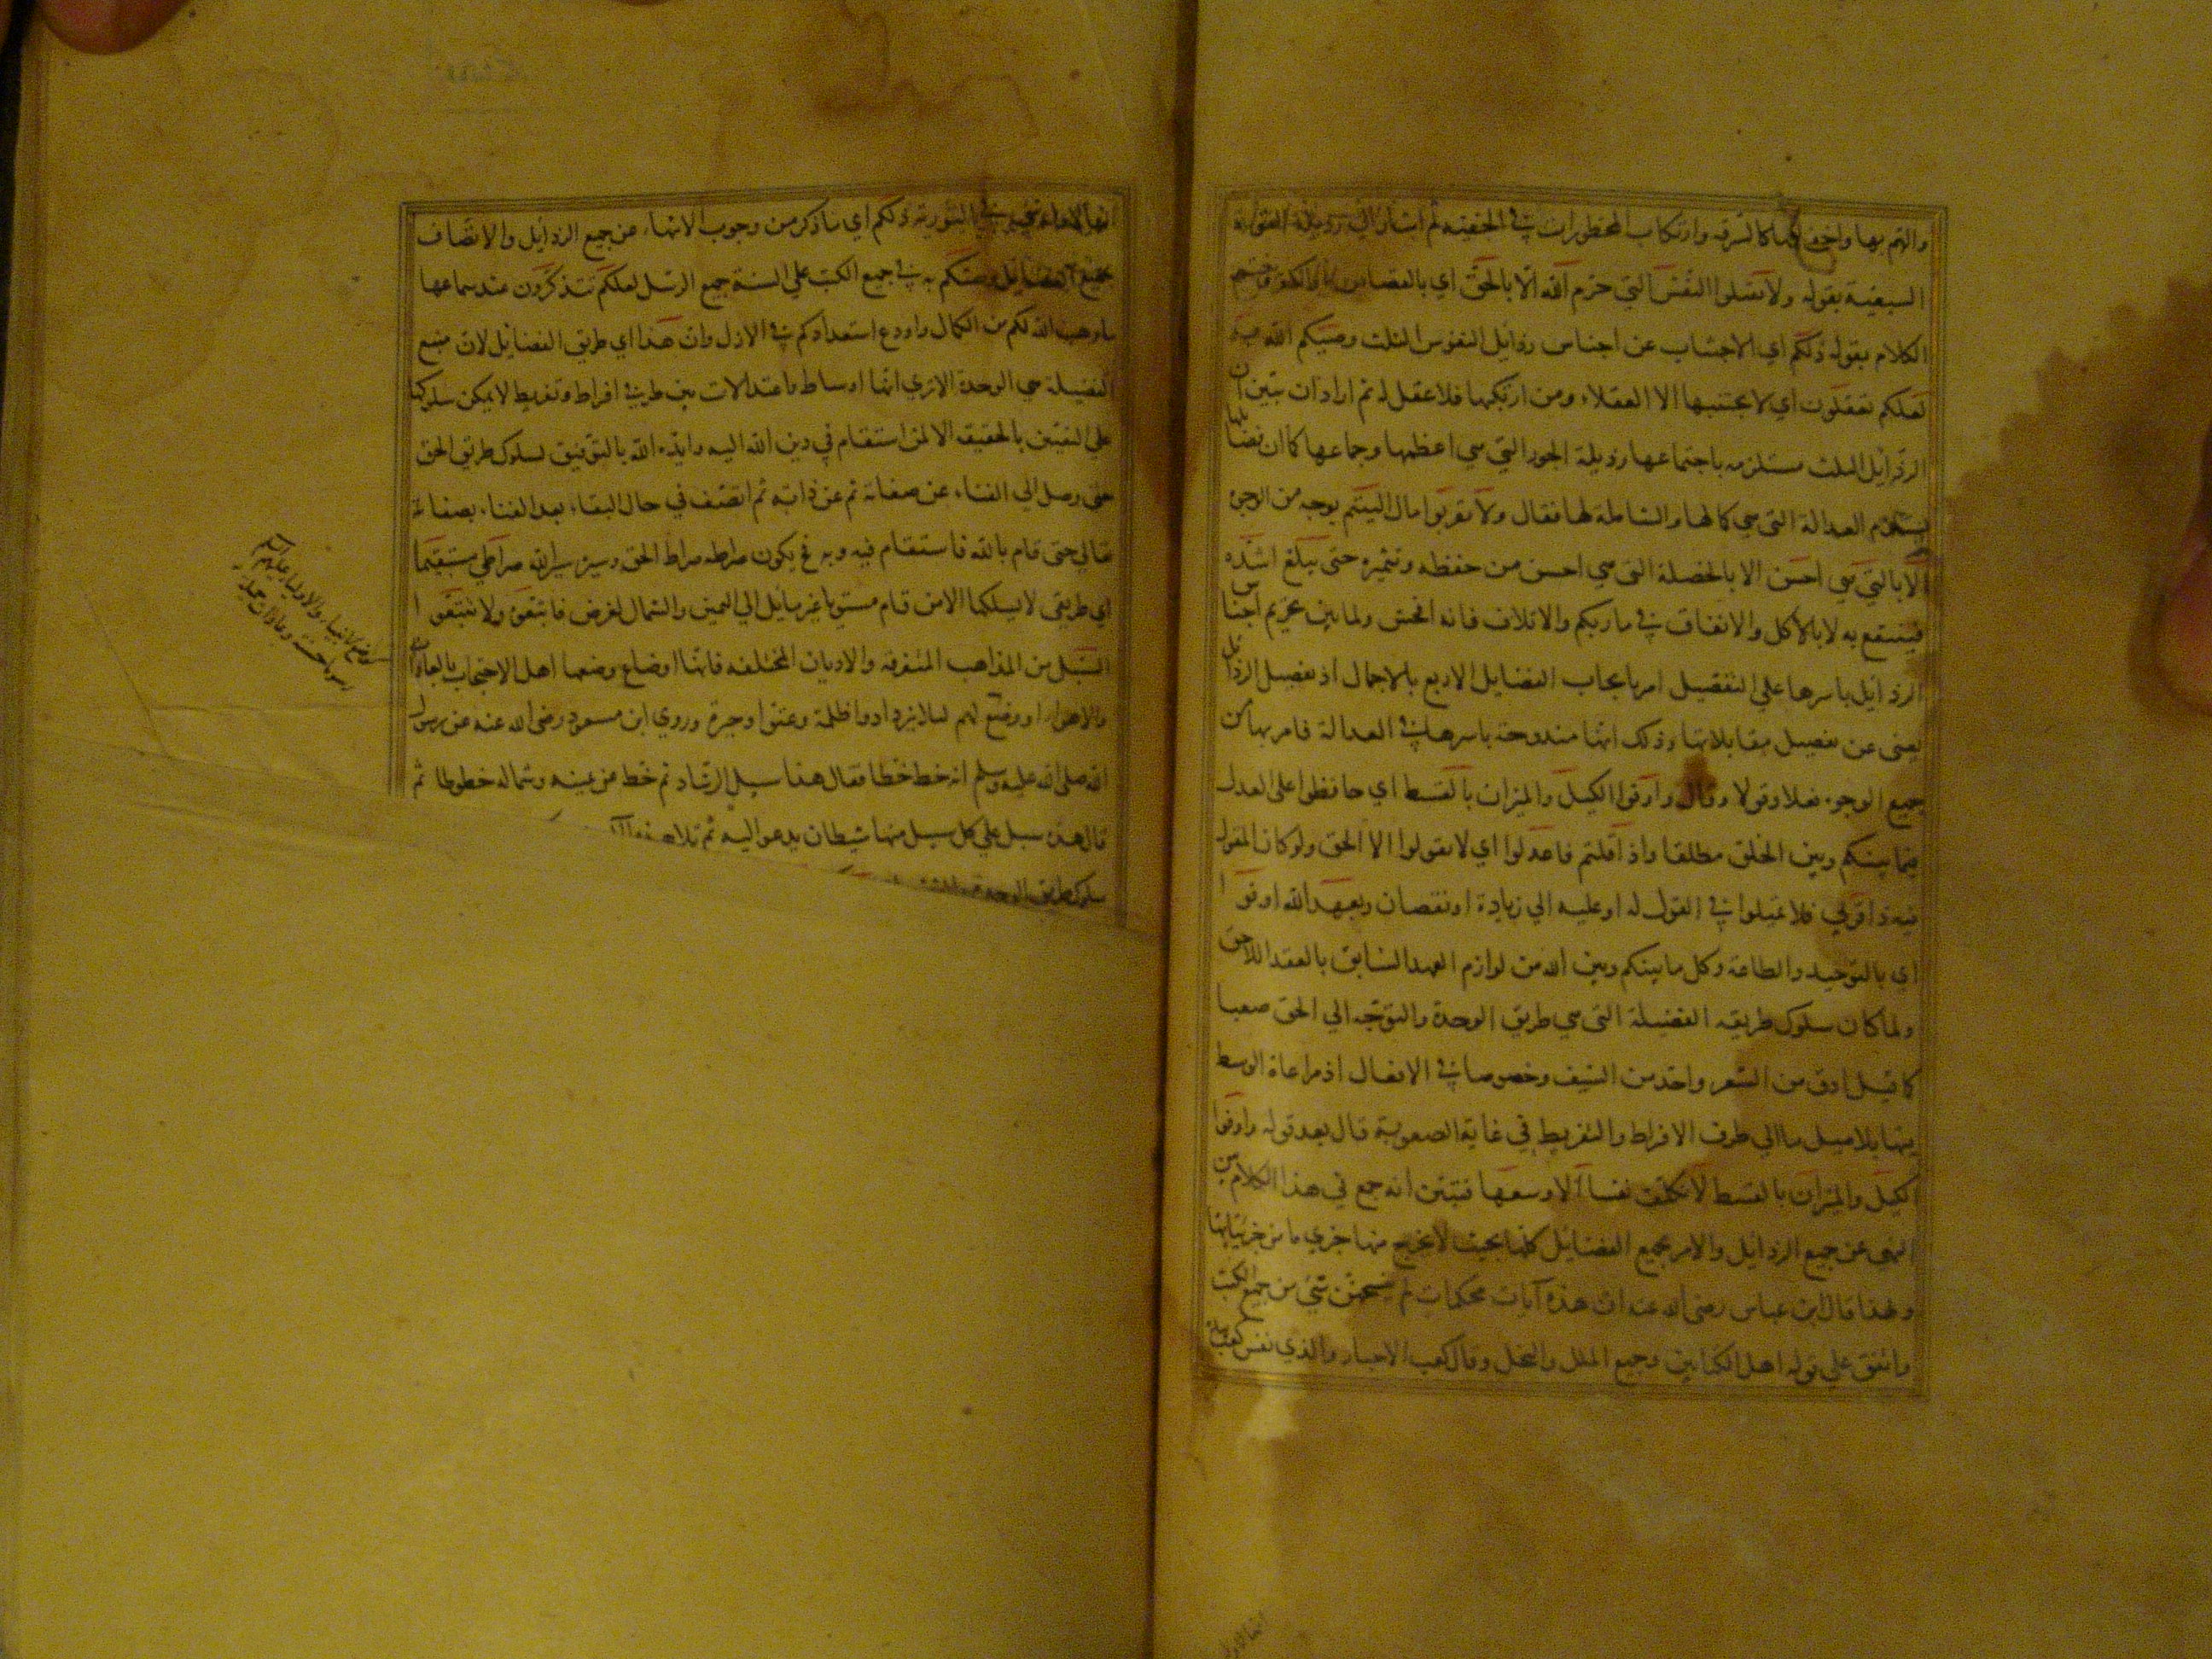 والتهم بها واخفاؤها كالسرقه وارتكاب المحظورات في الخفيه ثم اشار الي رذيلة القوة
السبعية بقوله ولا تقتلوا النفس التي حرم الله الا بالحق اي بالقصاص
الكلام بقوله ذلكم اي الاجتناب عن اجناس رذايل النفوس الثلث وصيكم الله به
لعلكم تعقلون اي لا يجتنبها الا العقلاء ومن ارتكبها فلا عقل له ثم اراد ان يبين ان
الرذايل الثلث مستلزمه باجتماعها رذيلة الجور التي هي اعظمها وجماعها كما ان فضايلها
يستلزم العدالة التي هي كمالها والشاملة لها فقال ولا تقربوا مال اليتيم بوجه من الوجوه
الا بالتي هي احسن الا بالخصلة التي هي احسن من حفظه وتثميره حتى يبلغ اشده
فينتفع به لا بالاكل والانفاق في ماربكم والاتلاف فانه افحش ولما بين تحريم اجناس
الرذايل باسرها علي التفصيل امر بايجاب الفضايل الاربع بالاجمال اذ تفصيل الرذايل
يغني عن تفصيل مقابلاتها وذلك انها مندرجة باسرها في العدالة فامر بها من
جميع الوجوه فعلا وقولا وقال واوفوا الكيل والميزان بالقسط اي حافظوا على العدل
فيما بينكم وبين الخلق مطلقا واذا قلتم فاعدلوا اي لا تقولوا الا الحق ولو كان المقول
فيه ذا قربي فلا تميلوا في القول له او عليه الي زيادة او نقصان وبعهد الله اوفوا
اي بالتوحيد والطاعة وكل ما بينكم وبين الله من لوازم العهد السابق بالعقد اللاحق
ولما كان سلوك طريقه الفضيلة التي هي طريق الوحدة والتوجه الي الحق صعبا
كما قيل ادق من الشعر واحد من السيف وخصوصا في الافعال اذ مراعاة الوسط
فيها بلا ميل ما الي طرف الافراط والتفريط في غاية الصعوبة قال بعد قوله واوفوا
الكيل والميزان بالقسط لا نكلف نفسا الا وسعها فتبين انه جمع في هذا الكلام بين
النهي عن جميع الرذايل والامر بجميع الفضايل كلها بحيث لا يخرج منها جزي ما من جزئياتها
ولهذا قال ابن عباس رضي الله عنه ان هذه آيات محكمات لم ينسخهن شيء من جميع الكتب
واتفق علي قوله اهل الكتابين وجميع الملل والنحل وقال كعب الاحبار والذي نفس كعب بيده
انها لاول شيء في التورية ذلكم اي ما ذكر من وجوب الانتهاء عن جميع الرذايل والاتصاف
بجميع الفضايل وصيكم به في جميع الكتب علي السنة جميع الرسل لعلكم تتذكرون عند سماعها
ما وهب الله لكم من الكمال واودع استعدادكم في الازل وان هذا اي طريق الفضايل لان منبع
الفضيلة هي الوحدة الا تري انها اوساط واعتدالات بين طرفي افراط وتفريط لا يمكن سلوكها
علي التعيين بالحقيقة الا لمن استقام في دين الله اليه وايده الله بالتوفيق لسلوك طريق الحق
حتى وصل الي الفناء عن صفاته ثم عن ذاته ثم اتصف في حال البقاء بعد الفناء بصفاته
تعالي حتى قام بالله فاستقام فيه وبه فح يكون صراطه صراط الحق وسيره سير الله صراطي مستقيما
اي طريقي لا يسلكها الا من قام مستويا غير مايل الي اليمين والشمال لغرض فاتبعوه ولا تتبعوا
السبل من المذاهب المتفرقه والاديان المختلفه فانها اوضاع وضعها اهل الاحتجاب بالعادات
والاهواء او وضع لهم ليلا يزدادوا ظلمة وعتوا وحيرة وروي ابن مسعود رضى الله عنه عن رسول
الله صلى الله عليه وسلم انه خط خطا فقال هذا سبيل الرشاد ثم خط عن يمينه وشماله خطوطا ثم
قال هذه سبل علي كل سبيل منها شيطان يدعو اليه ثم تلا هذه
سلوك طريق الوحدة